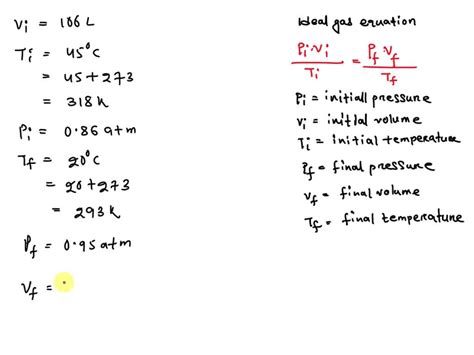 Vi = 106 L
Ti = 45°C
= 45+273
= 318k
Pi = 0.86 atm
Tf = 20°C
= 20+273
= 293k
Pf = 0.95 atm
Vf =
Ideal gas eruation
Pi.Vi / Ti = Pf Vf / Tf
Pi = initiall pressure
Vi = initial volume
Ti = initial temperature
Pf = final pressure
Vf = final volume
Tf = final temperature